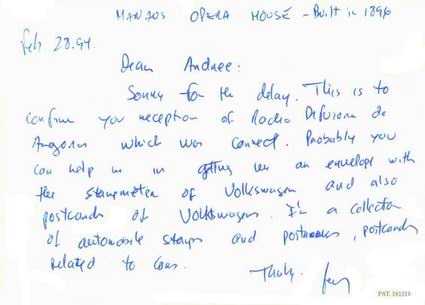 MANAOS OPERA HOUSE - Built in 1896
Feb. 28.94.
Dear Andree:
Sorry for the delay. This is to
confirm you reception of Radio Difusora do
Amazonas which was correct. Probably you
can help me in getting me an envelope with
the stampmeter of Volkswagen and also
postcards of Volkswagen. I'm a collector
of automobile stamps and postmarks, postcards
related to cars.
Thanks.
PAT. 591219